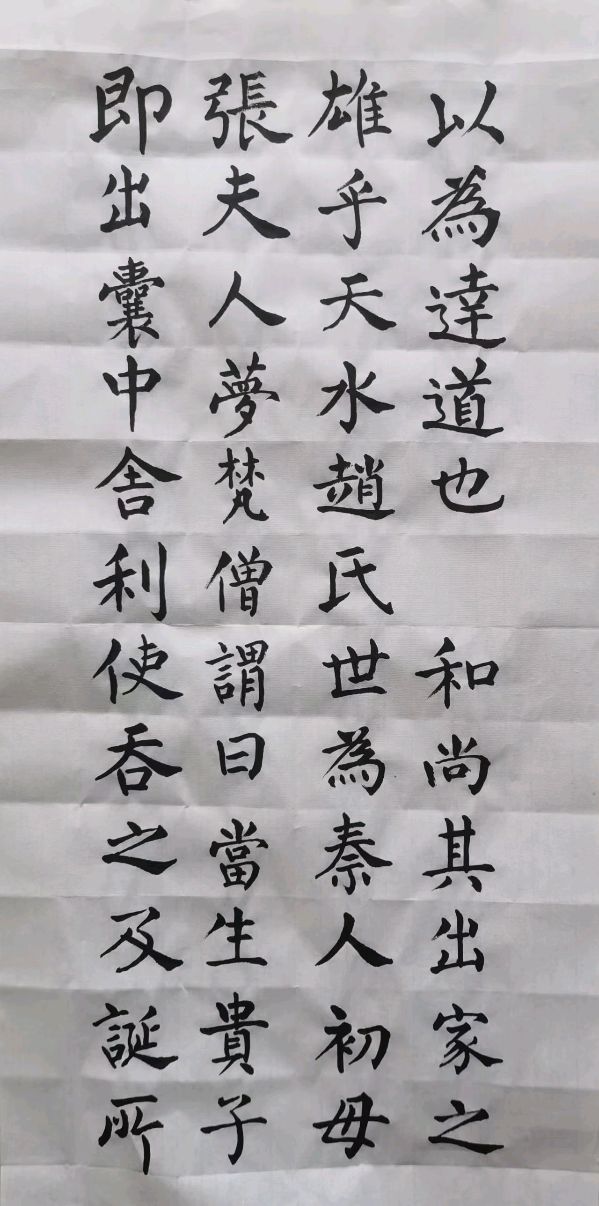 以為達道也 和尚其出家之
雄乎天水趙氏世為秦人初母
張夫人夢梵僧謂曰當生貴子
即出囊中舍利使吞之及誕所